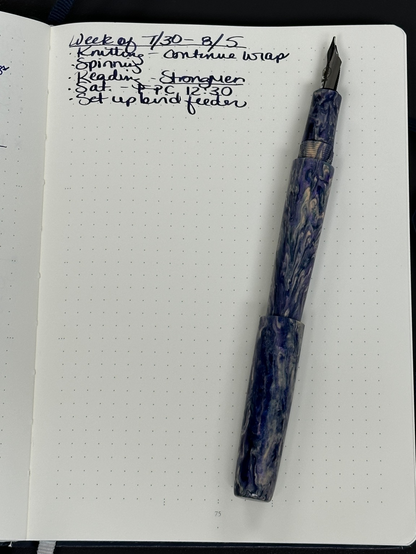 Week of 7/30 - 8/5
· Knitting - continue wrap
· Spinning
· Reading - Strongmen
· Sat. - PPC 12:30
· Set up bird feeder
75